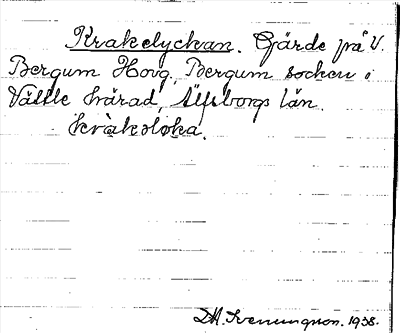 Krakelyckan. Gärde på V.
Bergum Hovg, Bergum socken i
Vättle härad, Älfsborgs län.
kràkəløka.
M. Svenungson. 1938.